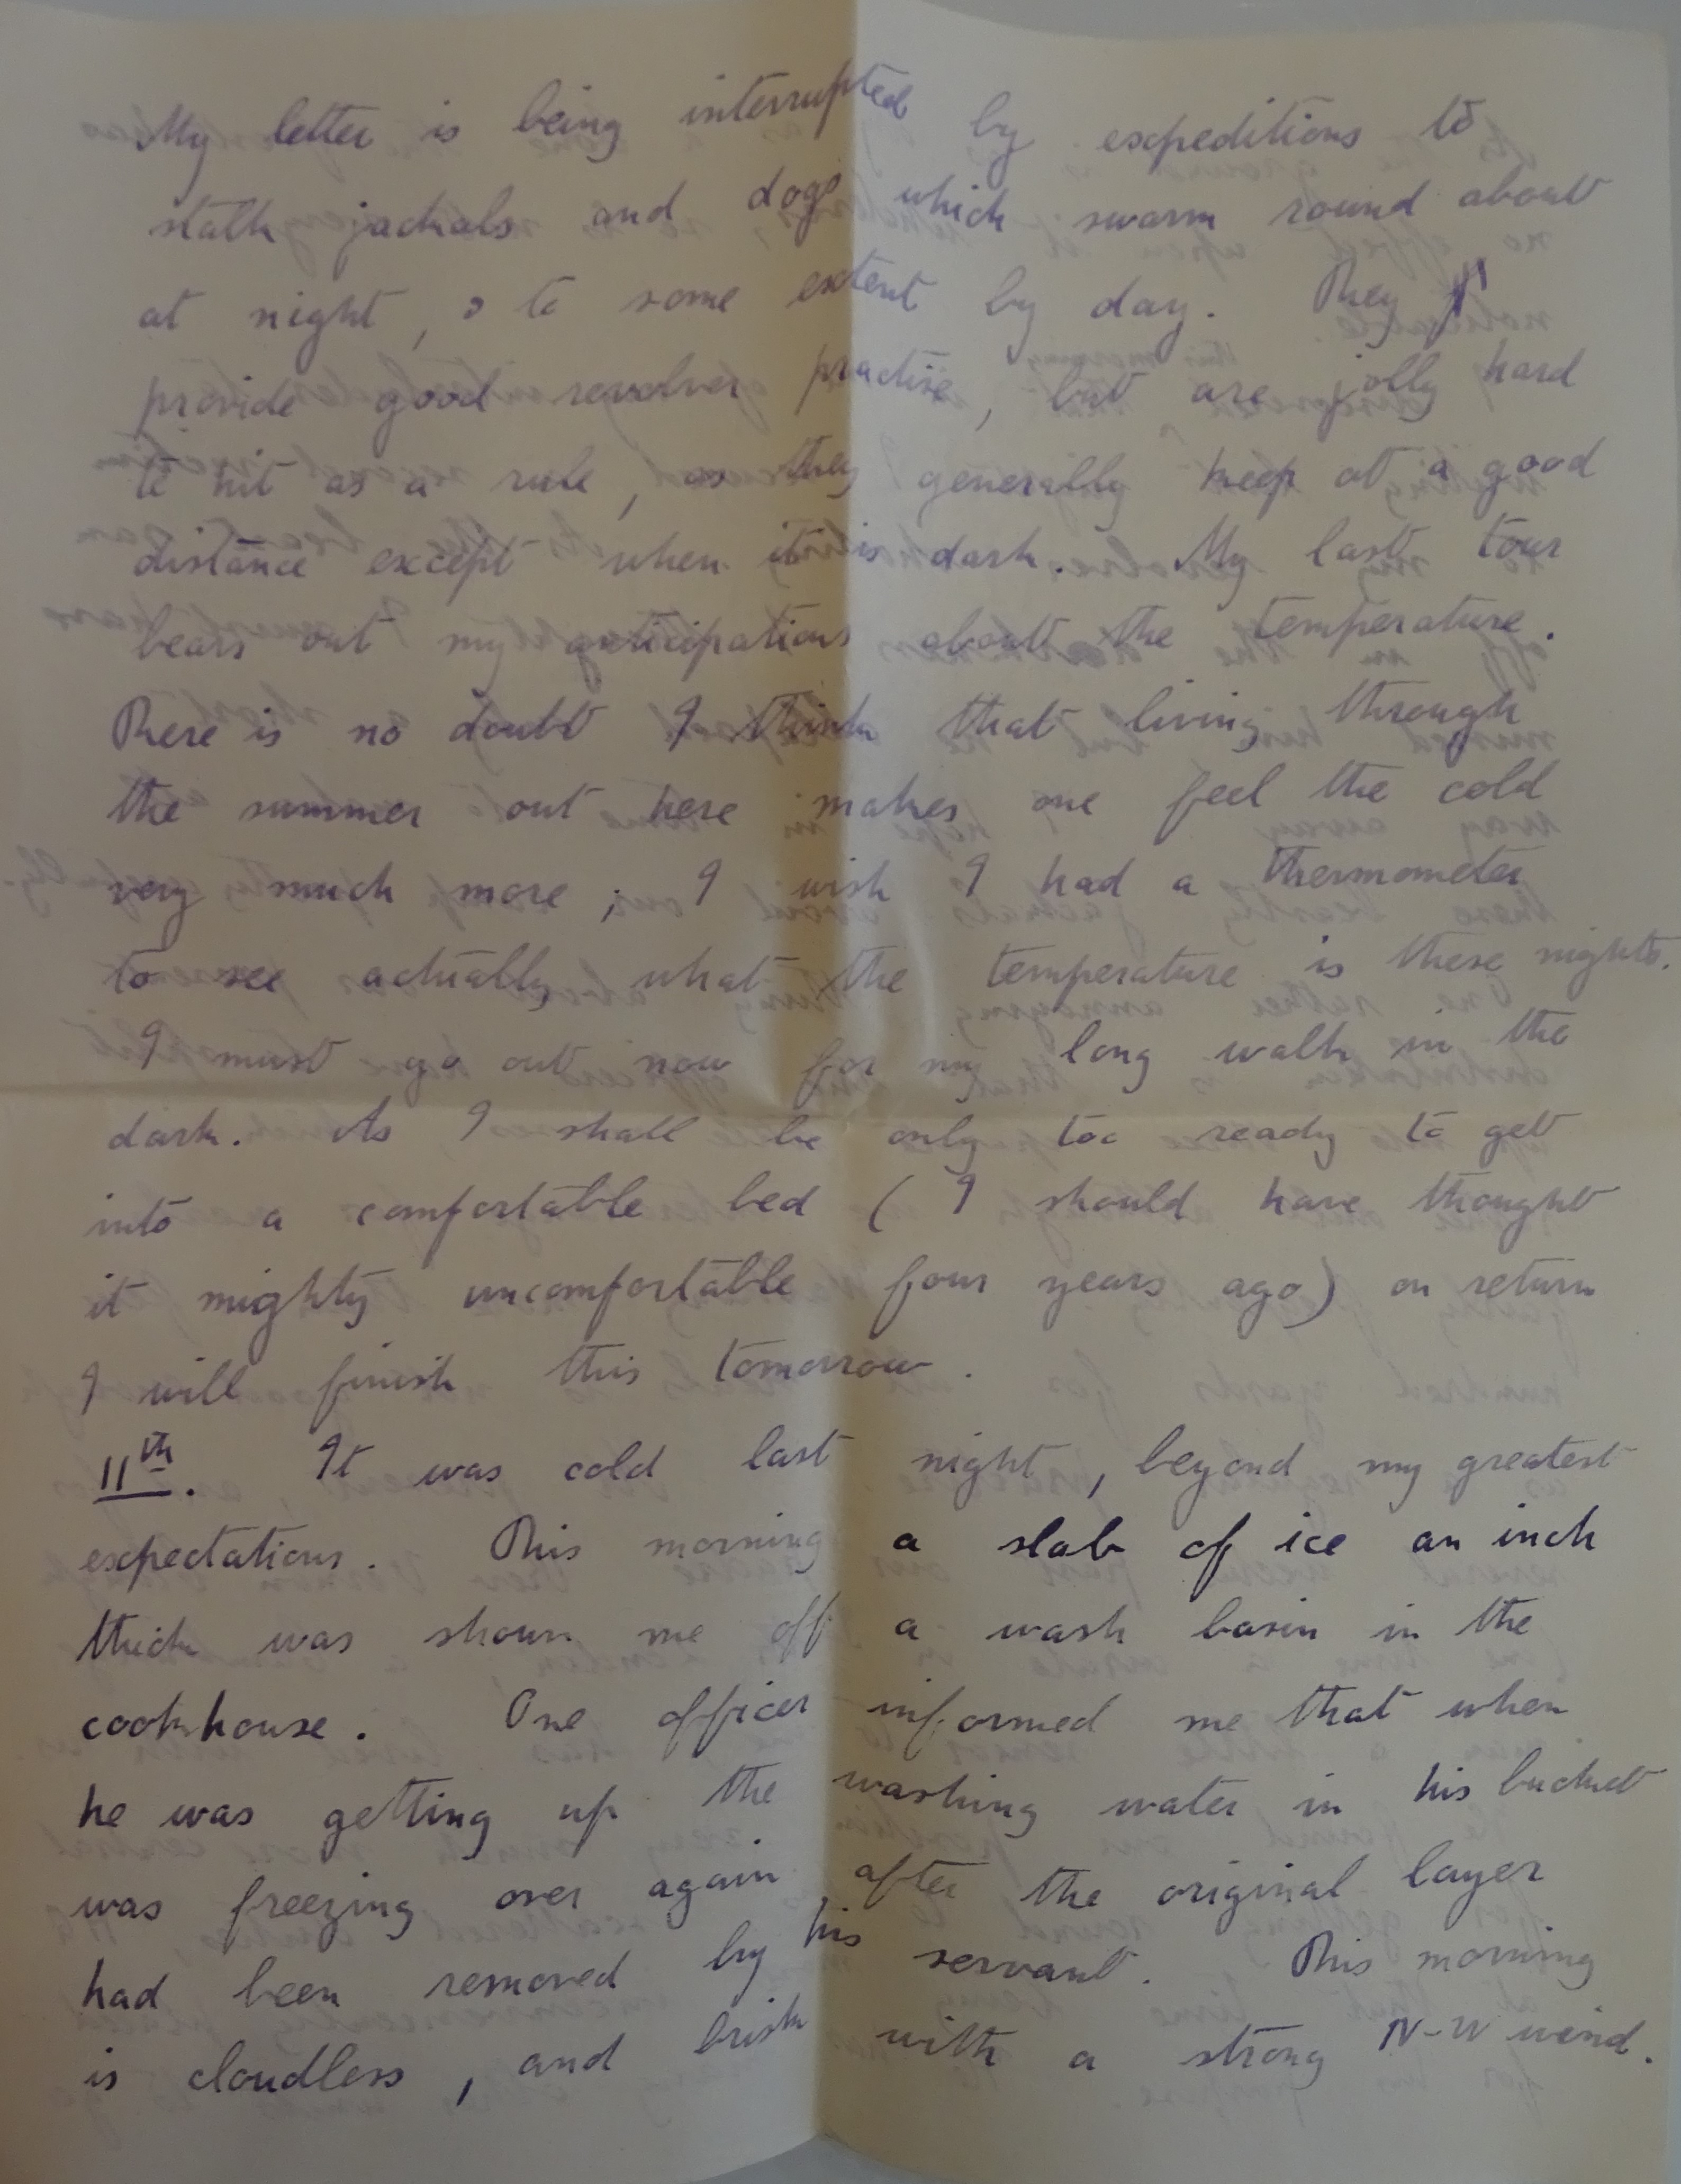 My letter is being interrupted by expeditions to
stalk jackals and dogs which swarm round about
at night, & to some extent by day. They
provide good revolver practise, but are jolly hard
to hit as a rule, as they generally keep at a good
distance except when it is dark. My last tour
bears out my anticipations about the temperature.
There is no doubt I think that living through
the summer out here makes one feel the cold
very much more; I wish I had a thermometer
to see actually what the temperature is these nights.
I must go out now for my long walk in the
dark. As I shall be only too ready to get
into a comfortable bed (I should have thought
it mighty uncomfortable four years ago) on return
I will finish this tomorrow.
11th. It was cold last night, beyond my greatest
expectations. This morning a slab of ice an inch
thick was shown me off a wash basin in the
cookhouse. One officer informed me that when
he was getting up the washing water in his bucket
was freezing over again, after the original layer
had been removed by his servant. This morning
is cloudless, and brisk with a strong N-W wind.